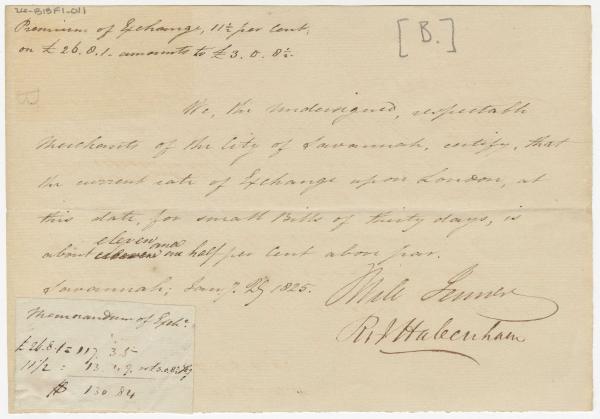 26-B13F1-011
Premium of Exchange, 11½ per Cent,
on £26.8.1. amounts to £3.0.8½.
[B.]
We, the undersigned, respectable
Merchants of the City of Savannah, certify, that
the current rate of Exchange upon London, at
this date, for small Bills of thirty days, is
eleven and
about one half per Cent above par.
Savannah; Jany. 29 1825.
R J Habersham
Memorandum of Exche.
£26.8.1 = 117.35
11 1/2 = 13.49
$ 130.84